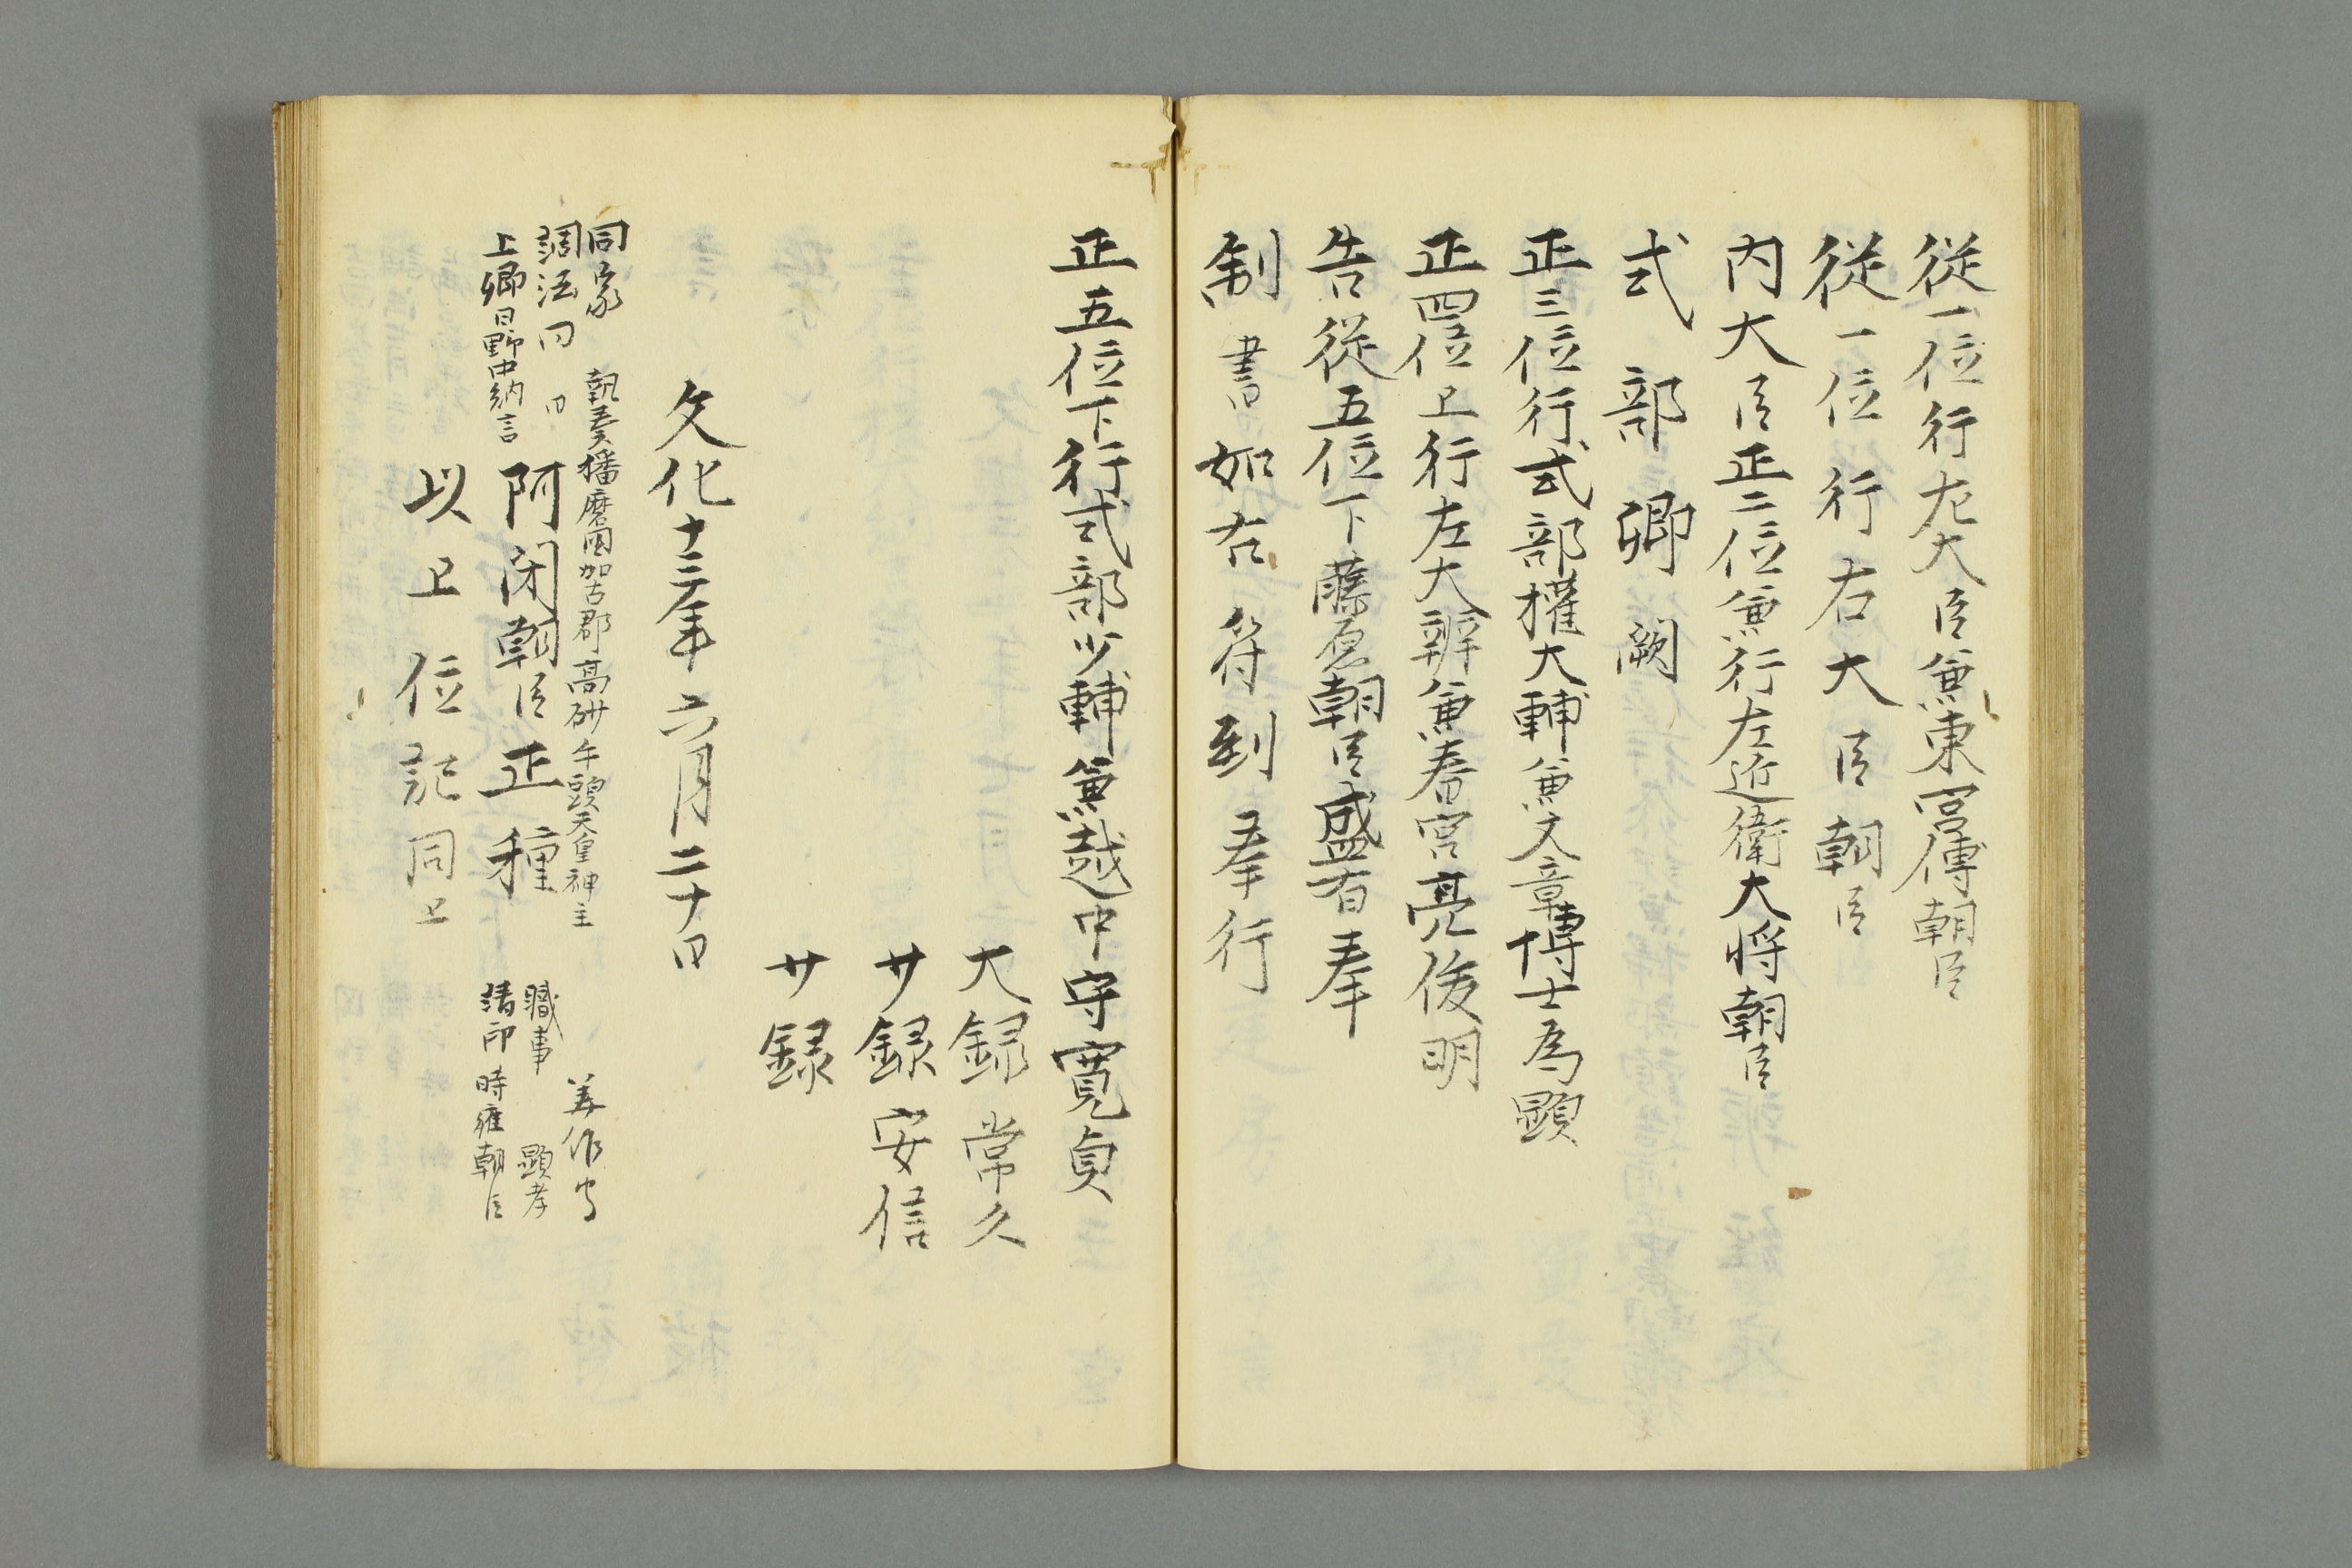 従一位行左大臣兼東宮傅朝臣
従一位行右大臣朝臣
内大臣正二位兼行左近衛大将朝臣
式部卿闕
正三位行式部権大輔兼文章博士為顕
正四位上行左大辨兼春宮亮俊明
告従五位下藤原朝臣盛有奉
制書如右符到奉行
正五位下行式部少輔兼越中守寛貞
大録常久
少録安信
少録
文化十三年六月二十日
同家 執奏播磨国加古郡高砂牛頭天皇神主
調法同日
上卿日野中納言
阿閉朝臣正種
美作守
職事 顕孝
請印 時雍朝臣
以上位記同上